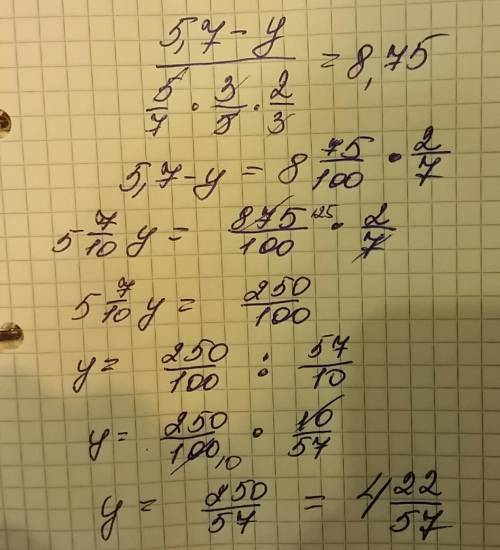 5,7 - y / (5/7 · 3/5 · 2/3) = 8,75
5,7 - y = 8 75/100 · 2/7
5 7/10 y = 875/100 125 · 2/7
5 7/10 y = 250/100
y = 250/100 : 57/10
y = 250/100 10 · 10/57
y = 250/57 = 4 22/57